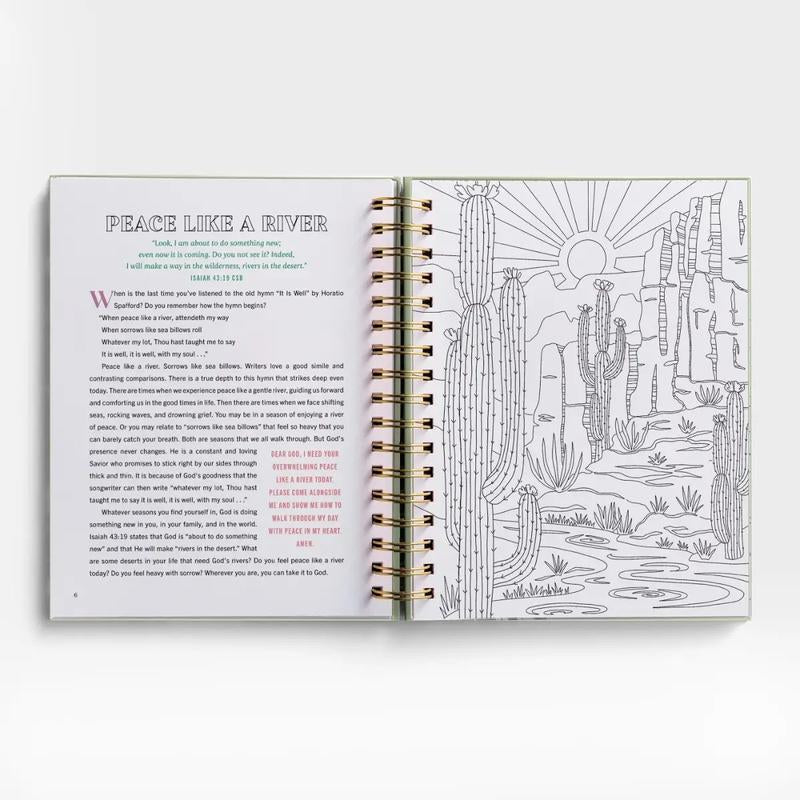 PEACE LIKE A RIVER
"Look, I am about to do something new;
even now it is coming. Do you not see it? Indeed,
I will make a way in the wilderness, rivers in the desert."
ISAIAH 43:19 CSB
When is the last time you've listened to the old hymn "It Is Well" by Horatio
Spafford? Do you remember how the hymn begins?
"When peace like a river, attendeth my way
When sorrows like sea billows roll
Whatever my lot, Thou hast taught me to say
It is well, it is well, with my soul . . ."
Peace like a river. Sorrows like sea billows. Writers love a good simile and
contrasting comparisons. There is a true depth to this hymn that strikes deep even
today. There are times when we experience peace like a gentle river, guiding us forward
and comforting us in the good times in life. Then there are times when we face shifting
seas, rocking waves, and drowning grief. You may be in a season of enjoying a river
of peace. Or you may relate to "sorrows like sea billows" that feel so heavy that you
can barely catch your breath. Both are seasons that we all walk through. But God's
presence never changes. He is a constant and loving
Savior who promises to stick right by our sides through
thick and thin. It is because of God's goodness that the
songwriter can then write "whatever my lot, Thou hast
taught me to say it is well, it is well, with my soul . . ."
Whatever seasons you find yourself in, God is doing
something new in you, in your family, and in the world.
Isaiah 43:19 states that God is "about to do something
new" and that He will make "rivers in the desert." What
are some deserts in your life that need God's rivers? Do you feel peace like a river
today? Do you feel heavy with sorrow? Wherever you are, you can take it to God.
DEAR GOD, I NEED YOUR
OVERWHELMING PEACE
LIKE A RIVER TODAY.
PLEASE COME ALONGSIDE
ME AND SHOW ME HOW TO
WALK THROUGH MY DAY
WITH PEACE IN MY HEART.
AMEN.
6